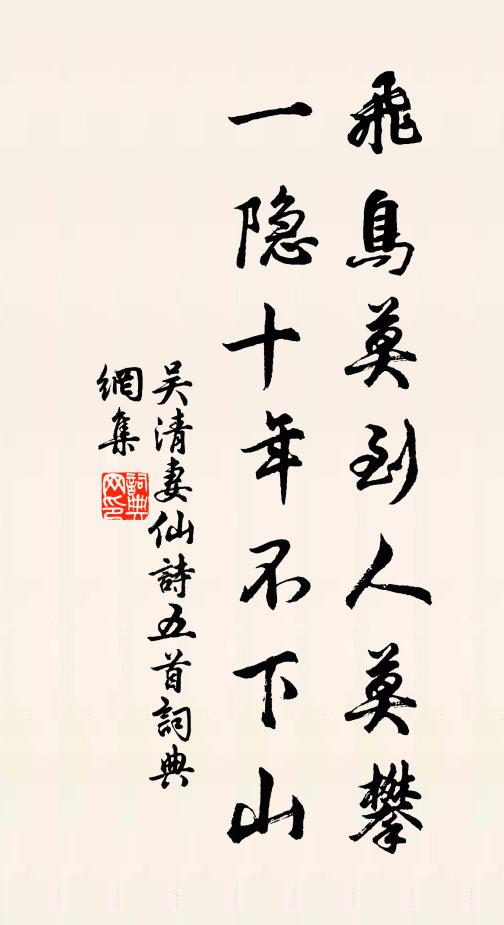 飛鳥莫到人莫攀
一隐十年不下山
吴清妻仙詩五首詞典
網集
詞典
网印